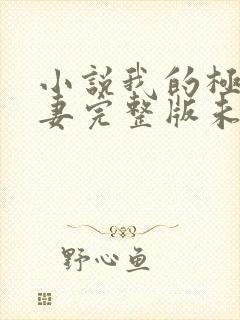 小説我的極
妻完整版未
野心鱼